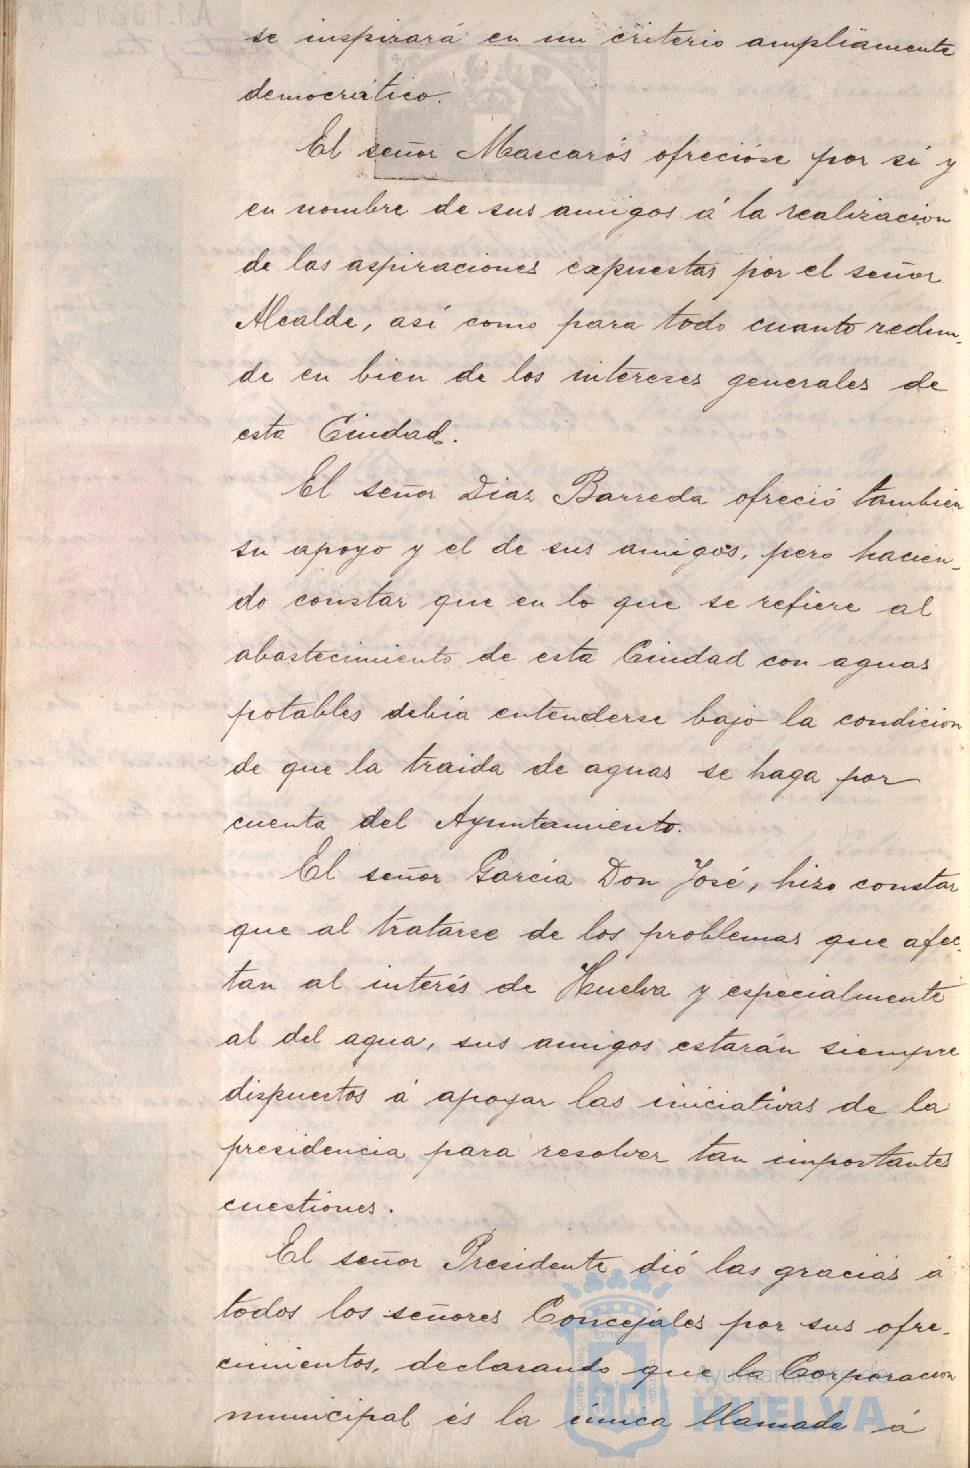 se inspirará en un criterio ampliamente
democrático.
El señor Mascarós ofrecióse por sí y
en nombre de sus amigos á la realización
de las aspiraciones expuestas por el señor
Alcalde, así como para todo cuanto redun-
de en bien de los intereses generales de
esta Ciudad.
El señor Diaz Barreda ofreció tambien
su apoyo y el de sus amigos, pero hacien-
do constar que en lo que se refiere al
abastecimiento de esta Ciudad con aguas
potables debia entenderse bajo la condicion
de que la traida de aguas se haga por
cuenta del Ayuntamiento.
El señor García Don José, hizo constar
que al tratarse de los problemas que afec-
tan al interés de Huelva y especialmente
al del agua, sus amigos estarán siempre
dispuestos á apoyar las iniciativas de la
presidencia para resolver tan importantes
cuestiones.
El señor Presidente dió las gracias á
todos los señores Concejales por sus ofre-
cimientos, declarando que la Corporacion
municipal és la única llamada á
Ayuntamiento de
HUELVA